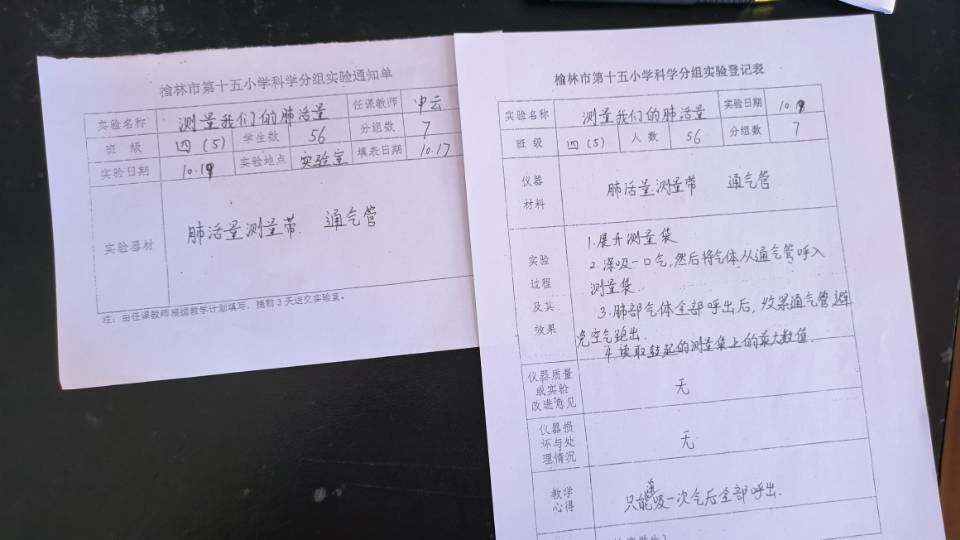 榆林市第十五小学科学分组实验通知单
实验名称 测量我们的肺活量 任课教师 申云
班 级 四(5) 学生数 56 分组数 7
实验日期 10.19 实验地点 实验室 填表日期 10.17
实验器材 肺活量测量带 通气管
注:由任课教师根据教学计划填写,提前3天送交实验室。
榆林市第十五小学科学分组实验登记表
实验名称 测量我们的肺活量 实验日期 10.19
班 级 四(5) 人 数 56 分组数 7
仪器
材料
肺活量测量带 通气管
实验
过程
及其
效果
1.展开测量袋
2.深吸一口气,然后将气体从通气管呼入
测量袋.
3.肺部气体全部呼出后,收紧通气管避
免空气跑出.
4.读取鼓起的测量袋上的最大数值.
仪器质量
或实验
改进意见
无
仪器损
坏与处
理情况
无
教学
心得
只能吸一次气后全部呼出.